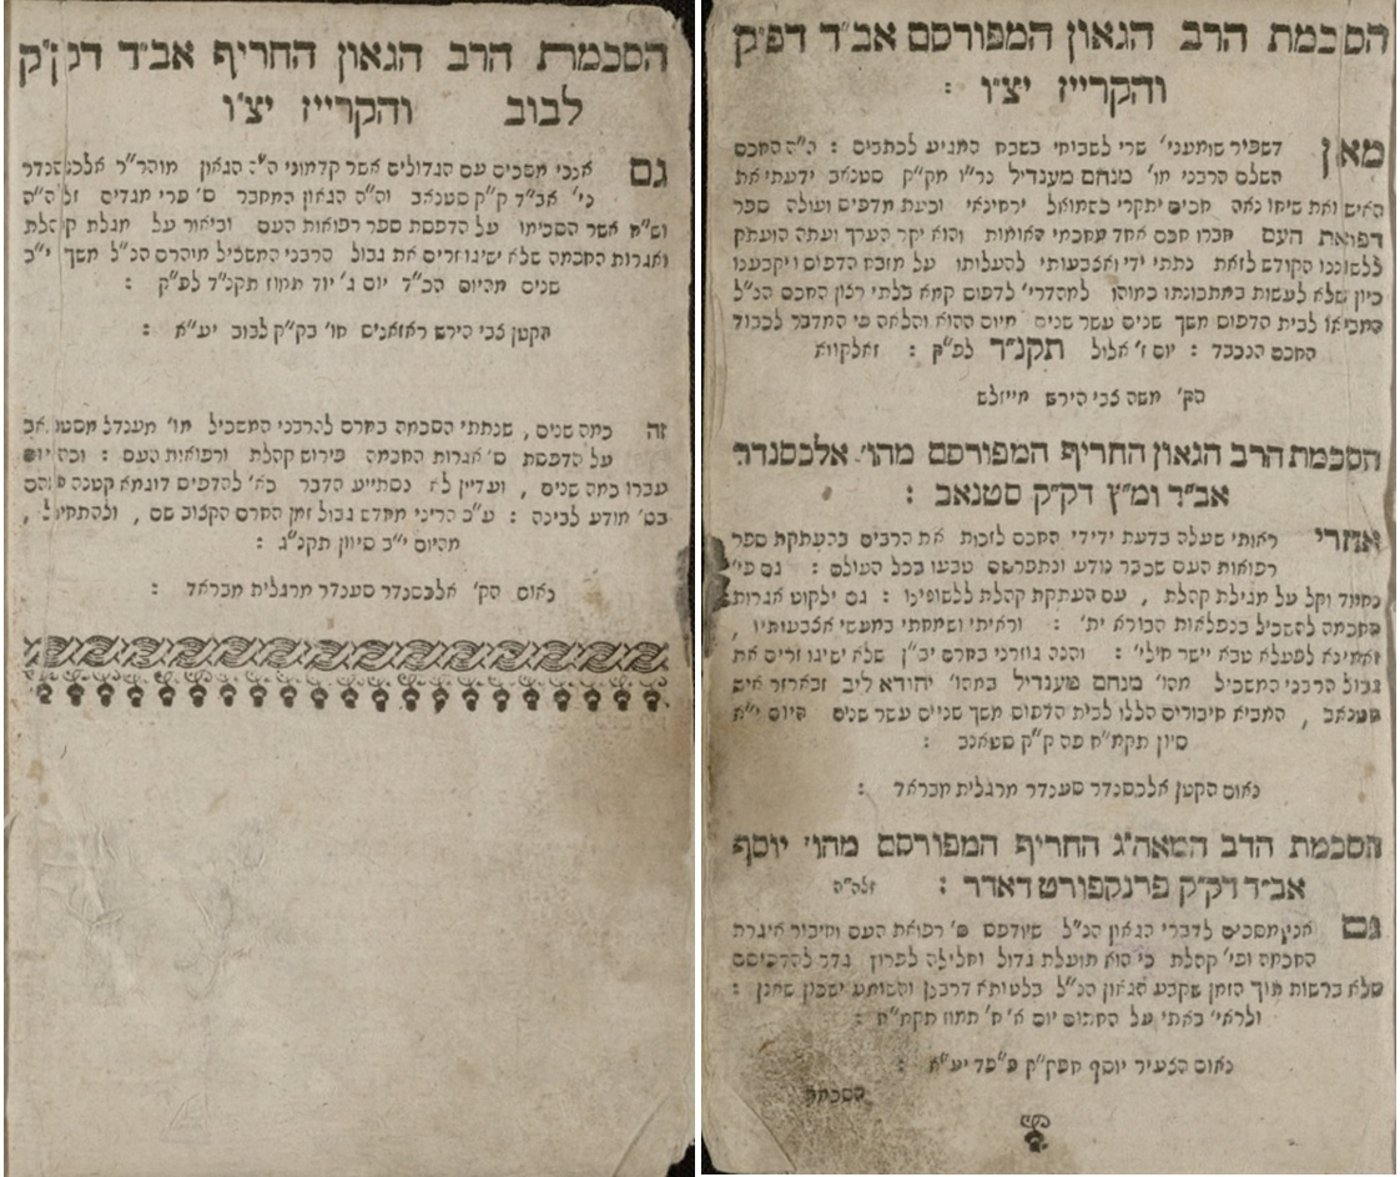 הסכמת הרב הגאון המפורסם אב״ד דפ״ק
והקרייז יצ״ו :
מאן דשפיר שומעני׳ שרי לשבוחי בשבח המגיע לכתבים : ה״ה החכם
השלם הרבני מו׳ מנחם מענדיל נר״ו מק״ק סטנאב ידעתי את
האיש ואת שיחו נאה חכים יתקרי כשמואל ירחינאי וכעת מדפים ועולה ספר
רפואת העם חברו חכם אחד מחכמי האומות והוא יקר הערך ועתה הועתק
ללשוננו הקודש לזאת נתתי ידי ואצבעותי להעלותו על מזבח הדפוס ויקבענו
כיון שלא לעשות במתכונתו כמוהו למהדרי׳ לדפוס קמא בלתי רצון החכם הנ״ל
המביאו לבית הדפוס משך שנים עשר שנים מיום ההוא והלאה כי המדבר לכבוד
החכם הנכבד : יום ז׳ אלול תקנ״ד לפ״ק : זאלקווא
הק׳ משה צבי הירש מייזלש
הסכמת הרב הגאון החריף המפורסם מהו׳ אלכסנדר
אב״ד ומ״ץ דק״ק סטנאב :
אחרי ראותי שעלה בדעת ידידי החכם לזכות את הרבים בהעתקת ספר
רפואות העם שכבר נודע ונתפרסם טבעו בכל העולם : גם פי׳
נחמד וקל על מגילת קהלת , עם העתקת קהלת ללשונינו : גם ילקוט אגרות
החכמה להשכיל בנפלאות הבורא ית׳ : וראיתי ושמחתי במעשי אצבעותיו ,
ואמינא לפעלא טבא יישר חילי׳ : והנה גוזרני בחרם יב״ן שלא ישיגו זרים את
גבול הרבני המשכיל מהו׳ מנחם מענדיל במהו׳ יהודא ליב זבארזר איש
סטנאב , המביא חיבורים הללו לבית הדפוס משך שניים עשר שנים היום י״ח
סיון תקמ״ח פה ק״ק סטאנב :
נאום הקטן אלכסנדר סענדר מרגלית מבראד :
הסכמת הרב המאה״ג החריף המפורסם מהו׳ יוסף
אב״ד דק״ק פרנקפורט דאדר : זלה״ה
גם אנכי מסכים לדברי הגאון הנ״ל שיודפס ס׳ רפואת העם וחיבור איגרת
החכמה ופי׳ קהלת כי הוא תועלת גדול וחלילה לפרוץ גדר להדפיסם
שלא ברשות תוך הזמן שקבע הגאון הנ״ל בלטותא דרבנן והשומע ישכון שאנן :
ולראי׳ באתי על החתום יום א׳ ח׳ תמוז תקמ״ח :
נאום הצעיר יוסף חפק״ק פ״פד יע״א :
הסכמת
הסכמת הרב הגאון החריף אב״ד דק״ק
לבוב והקרייז יצ״ו
גם אנכי מסכים עם הגדולים אשר קדמוני ה״ה הגאון מוהר״ר אלכסנדר
כי׳ אב״ד ק״ק סטנאב וה״ה הגאון המחבר ס׳ פרי מגדים זלה״ה
וש״ח אשר הסכימו על הדפסת ספר רפואות העם וביאור על מגלת קהלת
ואגרות החכמה שלא ישיגו זרים את גבול הרבני המשכיל מוהרם הנ״ל משך י״ב
שנים מהיום הכ״ד יום ג׳ יוד תמוז תקנ״ד לפ״ק :
הקטן צבי הירש ראזאנים חו׳ בק״ק לבוב יע״א :
זה כמה שנים , שנתתי הסכמה בחרם להרבני המשכיל מו׳ מענדל מסטנאב
על הדפסת ס׳ אגרות החכמה פירוש קהלת ורפואות העם : וכהיום
עברו כמה שנים , ועדיין לא נסתייע הדבר כא׳ להדפיס דוגמא קטנה מהם
בס׳ מודע לבינה : ע״כ הריני מחדש גבול זמן החרם הקצוב שם , ולהתחיל ,
מהיום י״ב סיוון תקנ״ג :
נאום הק׳ אלכסנדר סענדר מרגלית מבראד :